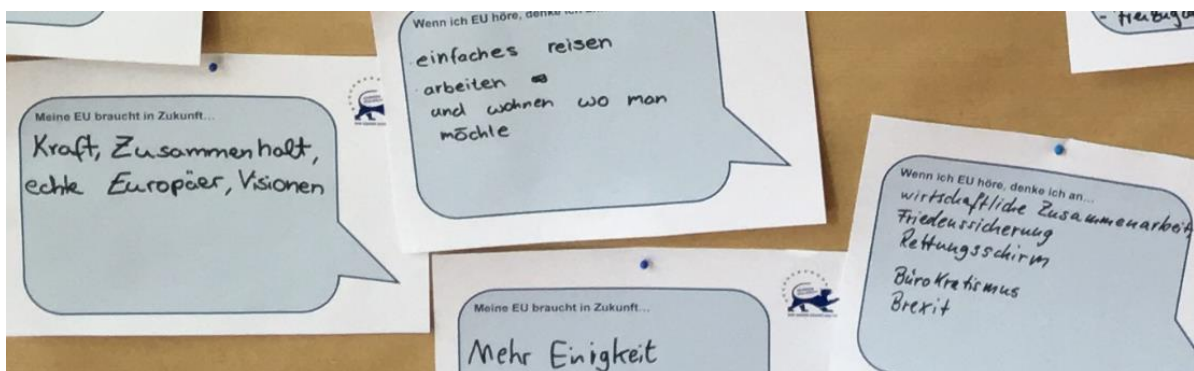 Meine EU braucht in Zukunft...
Kraft, Zusammenhalt,
echte Europäer, Visionen
Wenn ich EU höre, denke ich an...
einfaches reisen
arbeiten
und wohnen wo man
möchte
Meine EU braucht in Zukunft...
Mehr Einigkeit
Wenn ich EU höre, denke ich an...
wirtschaftliche Zusammenarbeit,
Friedenssicherung
Rettungsschirm
Bürokratismus
Brexit